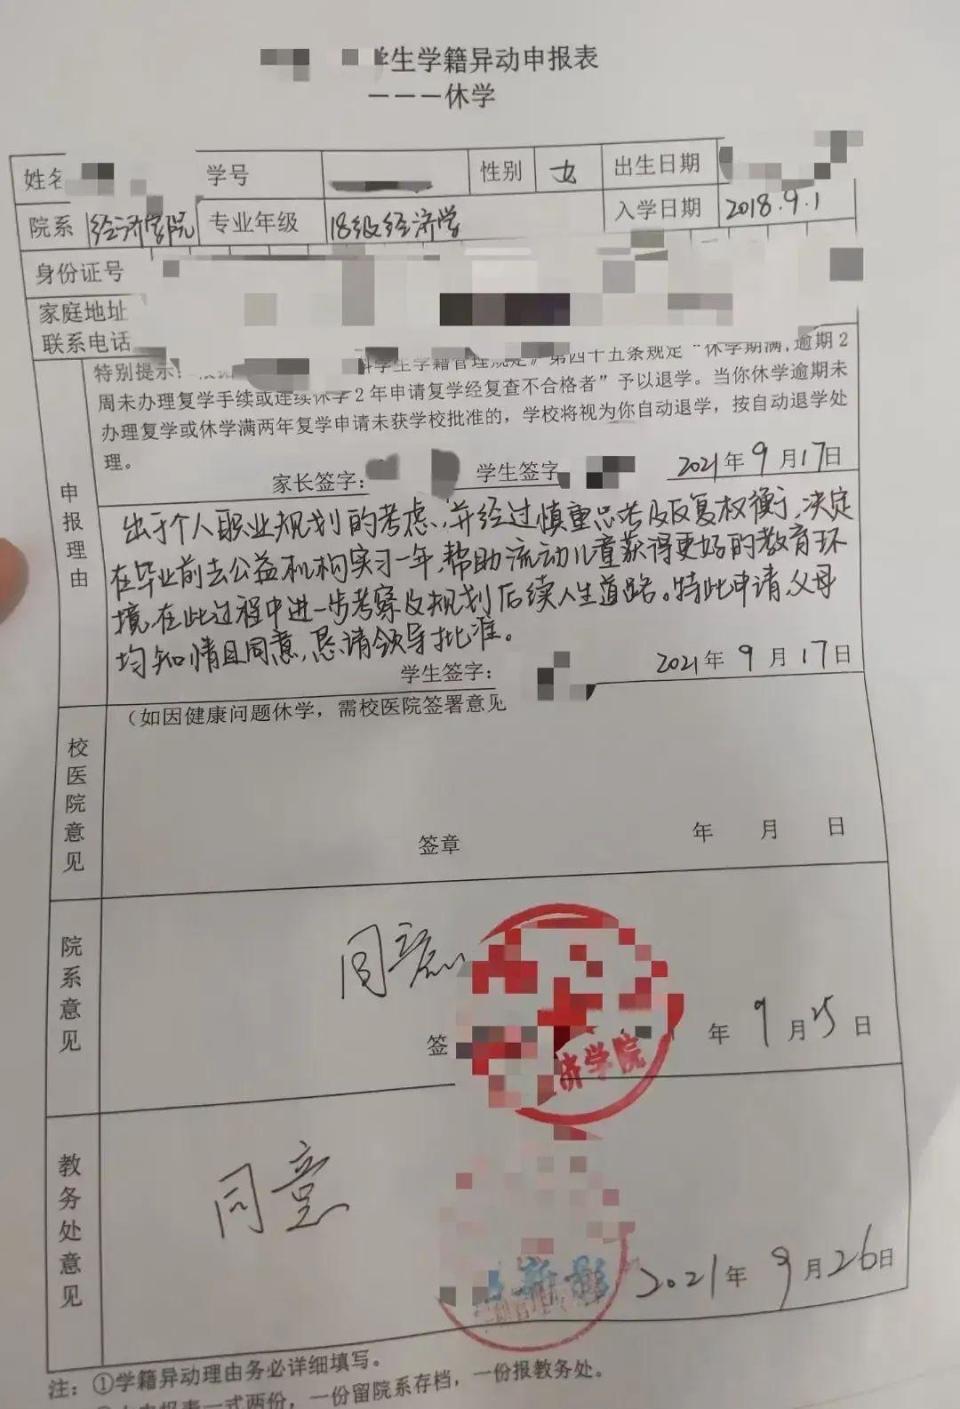 学生学籍异动申报表
———休学
姓名 学号 性别 女 出生日期
院系 经济学院 专业年级 18级经济学 入学日期 2018.9.1
身份证号
家庭地址
联系电话
特别提示: 科学生学籍管理规定》第四十五条规定“休学期满,逾期2
周未办理复学手续或连续休学2年申请复学经复查不合格者”予以退学。当你休学逾期未
办理复学或休学满两年复学申请未获学校批准的,学校将视为你自动退学,按自动退学处
理。
家长签字: 学生签字 2021年9月17日
申报理由
出于个人职业规划的考虑,并经过慎重思考及反复权衡,决定
在毕业前去公益机构实习一年,帮助流动儿童获得更好的教育环
境,在此过程中进一步考察及规划后续人生道路。特此申请,父母
均知情且同意,恳请领导批准。
学生签字: 2021年9月17日
校医院意见
(如因健康问题休学,需校医院签署意见
签章 年 月 日
院系意见
同意
签 年9月25日
济学院
教务处意见
同意
2021年9月26日
注:①学籍异动理由务必详细填写。
申报表一式两份,一份留院系存档,一份报教务处。